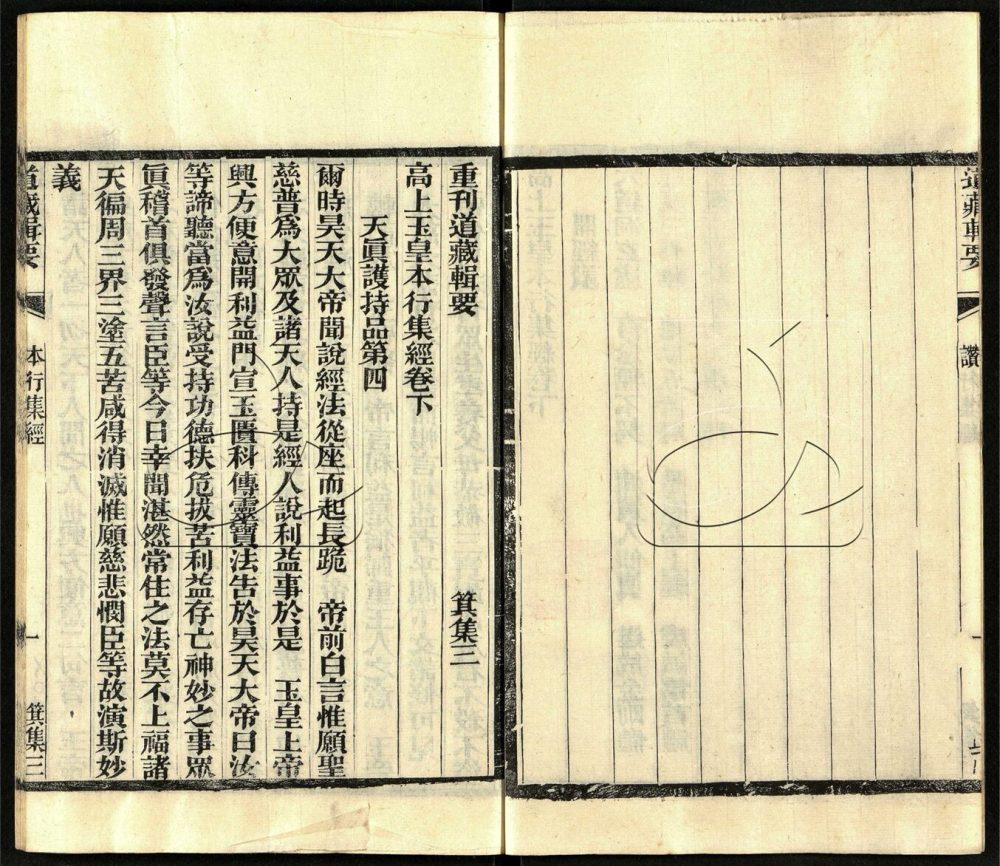 道藏輯要
讚
重刊道藏輯要 箕集三
高上玉皇本行集經卷下
天眞護持品第四
爾時昊天大帝聞說經法從座而起長跪 帝前白言惟願聖
慈普爲大眾及諸天人持是經人說利益事於是 玉皇上帝
興方便意開利益門宣玉匱科傳靈寶法吿於昊天大帝曰汝
等諦聽當爲汝說受持功德扶危拔苦利益存亡神妙之事眾
眞稽首俱發聲言臣等今日幸聞湛然常住之法莫不上福諸
天徧周三界三塗五苦咸得消滅惟願慈悲憫臣等故演斯妙
義
道藏輯要 本行集經 一 箕集三